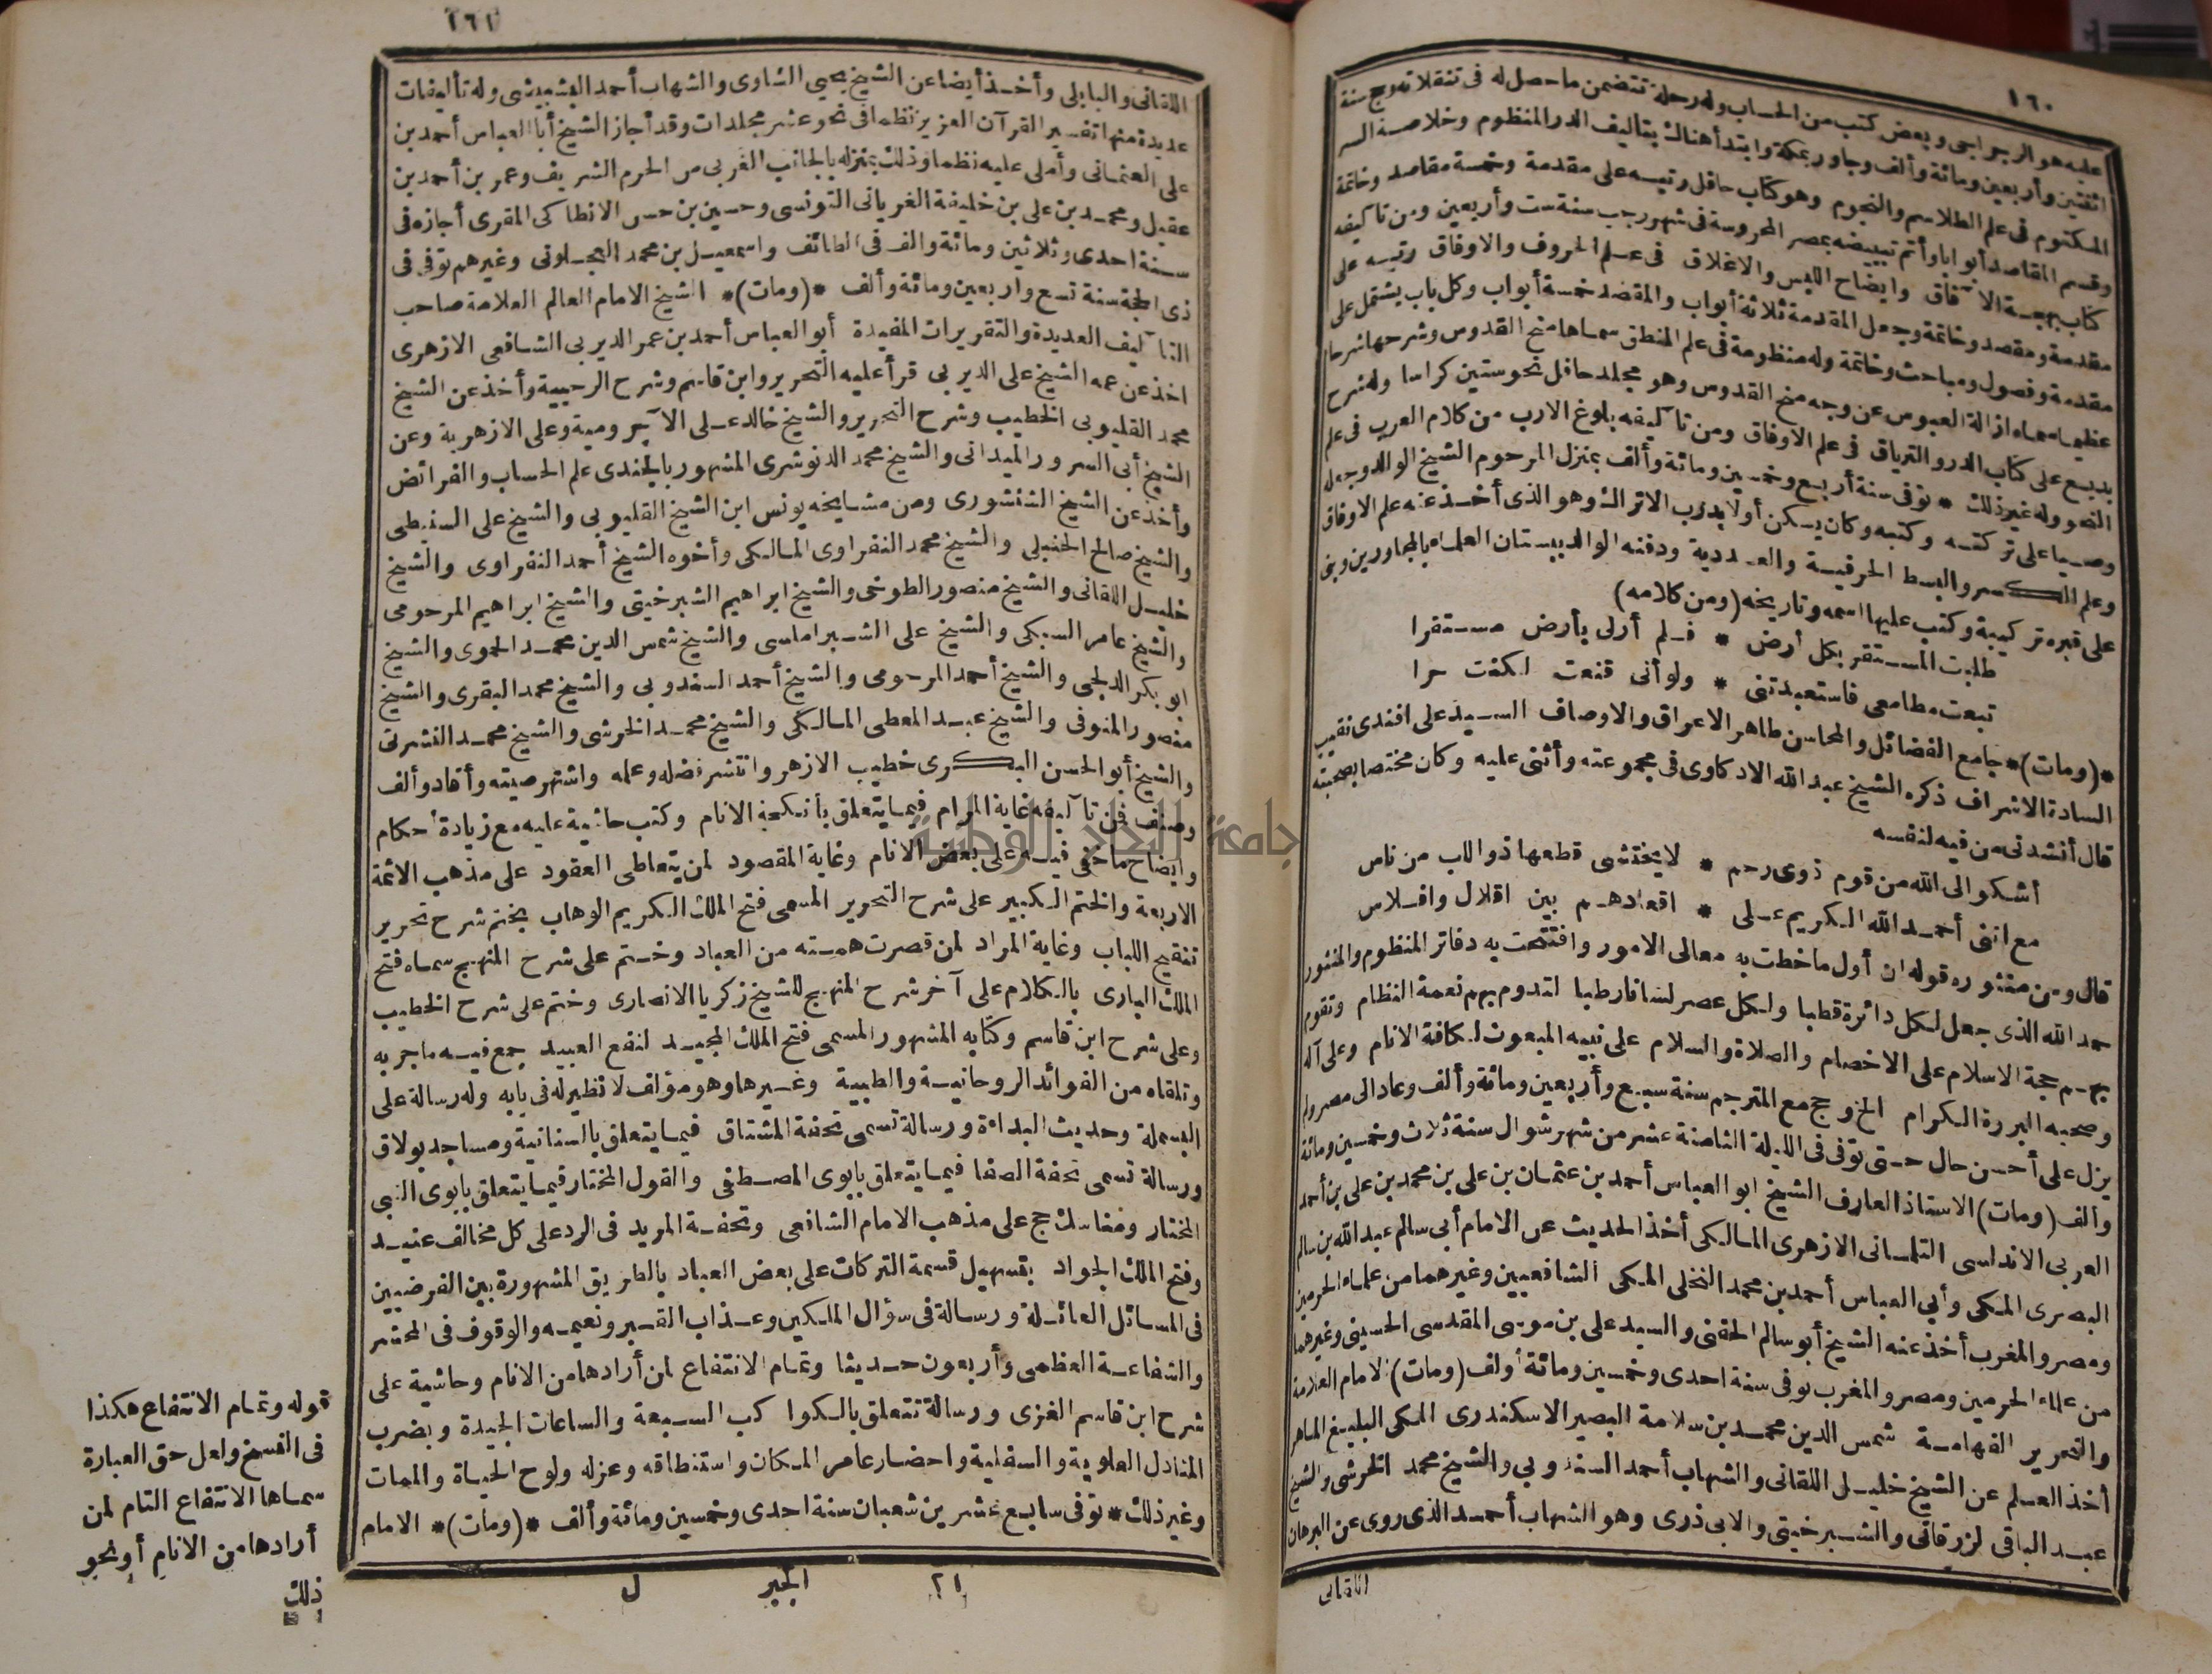 ١٦٠
عليه هو الرجراجى وبعض كتب من الحساب وله رحلة تتضمن ما حصل له فى تنقلاته وحج سنة
اثنتين وأربعين ومائة وألف وجاور بمكة وابتدأ هناك بتأليف الدر المنظوم وخلاصة السر
المكتوم فى علم الطلاسم والنجوم وهو كتاب حافل رتبه على مقدمة وخمسة مقاصد وخاتمة
وقسم المقاصد أبوابا وأتم تبييضه بمصر المحروسة فى شهر رجب سنة ست وأربعين ومن تآليفه
كتاب بهجة الآفاق وايضاح اللبس والاغلاق فى علم الحروف والاوفاق رتبه على
مقدمة ومقصد وخاتمة وجعل المقدمة ثلاثة أبواب والمقصد خمسة أبواب وكل باب يشتمل على
مقدمة وفصول ومباحث وخاتمة وله منظومة فى علم المنطق سماها منح القدوس وشرحها شرحا
عظيما سماه ازالة العبوس عن وجه منح القدوس وهو مجلد حافل نحو ستين كراسا وله شرح
بديع على كتاب الدر والترياق فى علم الاوفاق ومن تآليفه بلوغ الارب من كلام العرب فى علم
النحو وله غير ذلك * توفى سنة أربع وخمسين ومائة وألف بمنزل المرحوم الشيخ الوالد وجعله
وصيا على تركته وكتبه وكان يسكن أولا بدرب الاتراك وهو الذى أخذ عنه علم الاوفاق
وعلم الكسر والبسط الحرفية والعددية ودفنه الوالد ببستان العلماء بالمجاورين وبنى
على قبره تركيبة وكتب عليها اسمه وتاريخه (ومن كلامه)
طلبت المستقر بكل أرض * فلم أرلى بأرض مستقرا
تبعت مطامعى فاستعبدتنى * ولو أنى قنعت لكنت حرا
*(ومات)* جامع الفضائل والمحاسن طاهر الاعراق والاوصاف السيد على افندى نقيب
السادة الاشراف ذكره الشيخ عبد الله الادكاوى فى مجموعته وأثنى عليه وكان مختصا بصحبته
قال أنشدنى من فيه لنفسه
أشكو الى الله من قوم ذوى رحم * لا يختشى قطعها ذو اللب من ناس
مع اننى أحمد الله الكريم على * اقعادهم بين اقلال وافلاس
قال ومن منثوره قوله ان أول ما خطت به معالى الامور وافتتحت به دفاتر المنظوم والمنثور
حمد الله الذى جعل لكل دائرة قطبا ولكل عصر لسانا رطبا لتدوم بهم نعمة النظام وتقوم
بهم حجة الاسلام على الاخصام والصلاة والسلام على نبيه المبعوث لكافة الانام وعلى آله
وصحبه البررة الكرام الخ وحج مع المترجم سنة سبع وأربعين ومائة وألف وعاد الى مصر ولم
يزل على أحسن حال حتى توفى فى الليلة الثامنة عشر من شهر شوال سنة ثلاث وخمسين ومائة
وألف (ومات) الاستاذ العارف الشيخ ابو العباس أحمد بن عثمان بن على بن محمد بن على بن أحمد
العربى الاندلسى التلمسانى الازهرى المالكى أخذ الحديث عن الامام أبى سالم عبد الله بن سالم
البصرى المكى وأبى العباس أحمد بن محمد النخلى المكى الشافعيين وغيرهما من علماء الحرمين
ومصر والمغرب أخذ عنه الشيخ أبو سالم الحفنى والسيد على بن موسى المقدسى الحسينى وغيرهما
من علماء الحرمين ومصر والمغرب توفى سنة احدى وخمسين ومائة وألف (ومات) الامام العلامة
والنحرير الفهامة شمس الدين محمد بن سلامة البصير الاسكندرى المكى البليغ الماهر
أخذ العلم عن الشيخ خليل اللقانى والشهاب أحمد السندوبى والشيخ محمد الخرشى والشيخ
عبد الباقى الزرقانى والشبرخيتى والابى ذرى وهو الشهاب أحمد الذى روى عن البرهان
اللقانى
١٦١
اللقانى والبابلى وأخذ أيضا عن الشيخ يحيى الشاوى والشهاب أحمد البشبيشى وله تأليفات
عديدة منها تفسير القرآن العزيز نظما فى نحو عشر مجلدات وقد أجاز الشيخ أبا العباس أحمد بن
على العثمانى وأملى عليه نظما وذلك بمنزله بالجانب الغربى من الحرم الشريف وعمر بن أحمد بن
عقيل ومحمد بن على بن خليفة الغريانى التونسى وحسين بن حسن الانطاكى المقرى أجازه فى
سنة احدى وثلاثين ومائة والف فى الطائف واسمعيل بن محمد العجلونى وغيرهم توفى فى
ذى الحجة سنة تسع واربعين ومائة وألف *(ومات)* الشيخ الامام العالم العلامة صاحب
التآليف العديدة والتقريرات المفيدة أبو العباس أحمد بن عمر الديربى الشافعى الازهرى
اخذ عن عمه الشيخ على الديربى قرأ عليه التحرير وابن قاسم وشرح الرحبية وأخذ عن الشيخ
محمد القليوبى الخطيب وشرح التحرير والشيخ خالد على الآجرومية وعلى الازهرية وعن
الشيخ أبى السرور الميدانى والشيخ محمد الدنوشرى المشهور بالجندى علم الحساب والفرائض
وأخذ عن الشيخ الشنشورى ومن مشايخه يونس ابن الشيخ القليوبى والشيخ على السنبطى
والشيخ صالح الحنبلى والشيخ محمد النفراوى المالكى وأخوه الشيخ أحمد النفراوى والشيخ
خليل اللقانى والشيخ منصور الطوخى والشيخ ابراهيم الشبرخيتى والشيخ ابراهيم المرحومى
والشيخ عامر السبكى والشيخ على الشبراملسى والشيخ شمس الدين محمد الحموى والشيخ
ابو بكر الدلجى والشيخ أحمد المرحومى والشيخ أحمد السندوبى والشيخ محمد البقرى والشيخ
منصور المنوفى والشيخ عبد المعطى المالكى والشيخ محمد الخرشى والشيخ محمد النشرتى
والشيخ أبو الحسن البكرى خطيب الازهر وانتشر فضله وعلمه واشتهر صيته وأفاد وألف
وصنف فمن تآليفه غاية المرام فيما يتعلق بأنكحة الانام وكتب حاشية عليه مع زيادة أحكام
وايضاح ما خفى فيه على بعض الانام وغاية المقصود لمن يتعاطى العقود على مذهب الائمة
الاربعة والختم الكبير على شرح التحرير المسمى فتح الملك الكريم الوهاب بختم شرح تحرير
تنقيح اللباب وغاية المراد لمن قصرت همته من العباد وختم على شرح المنهج سماه فتح
الملك البارى بالكلام على آخر شرح المنهج للشيخ زكريا الانصارى وختم على شرح الخطيب
وعلى شرح ابن قاسم وكتابه المشهور المسمى فتح الملك المجيد لنفع العبيد جمع فيه ما جربه
وتلقاه من الفوائد الروحانية والطبية وغيرها وهو مؤلف لا نظير له فى بابه وله رسالة على
البسملة وحديث البداءة ورسالة تسمى تحفة المشتاق فيما يتعلق بالسنانية ومساجد بولاق
ورسالة تسمى تحفة الصفا فيما يتعلق بابوى المصطفى والقول المختار فيما يتعلق بابوى النبى
المختار ومناسك حج على مذهب الامام الشافعى وتحفة المريد فى الرد على كل مخالف عنيد
وفتح الملك الجواد بتسهيل قسمة التركات على بعض العباد بالطريق المشهورة بين الفرضيين
فى المسائل العائلة ورسالة فى سؤال الملكين وعذاب القبر ونعيمه والوقوف فى المحشر
والشفاعة العظمى وأربعون حديثا وتمام الانتفاع لمن أرادها من الانام وحاشية على
شرح ابن قاسم الغزى ورسالة تتعلق بالكواكب السبعة والساعات الجيدة وبضرب
المنادل العلوية والسفلية واحضار عامر المكان واستنطاقه وعزله ولوح الحياة والممات
وغير ذلك * توفى سابع عشرين شعبان سنة احدى وخمسين ومائة وألف *(ومات)* الامام
٢١ الجبر ل
قوله وتمام الانتفاع هكذا
فى النسخ ولعل حق العبارة
سماها الانتفاع التام لمن
أرادها من الانام أو نحو
ذلك
جامعة النجاح الوطنية